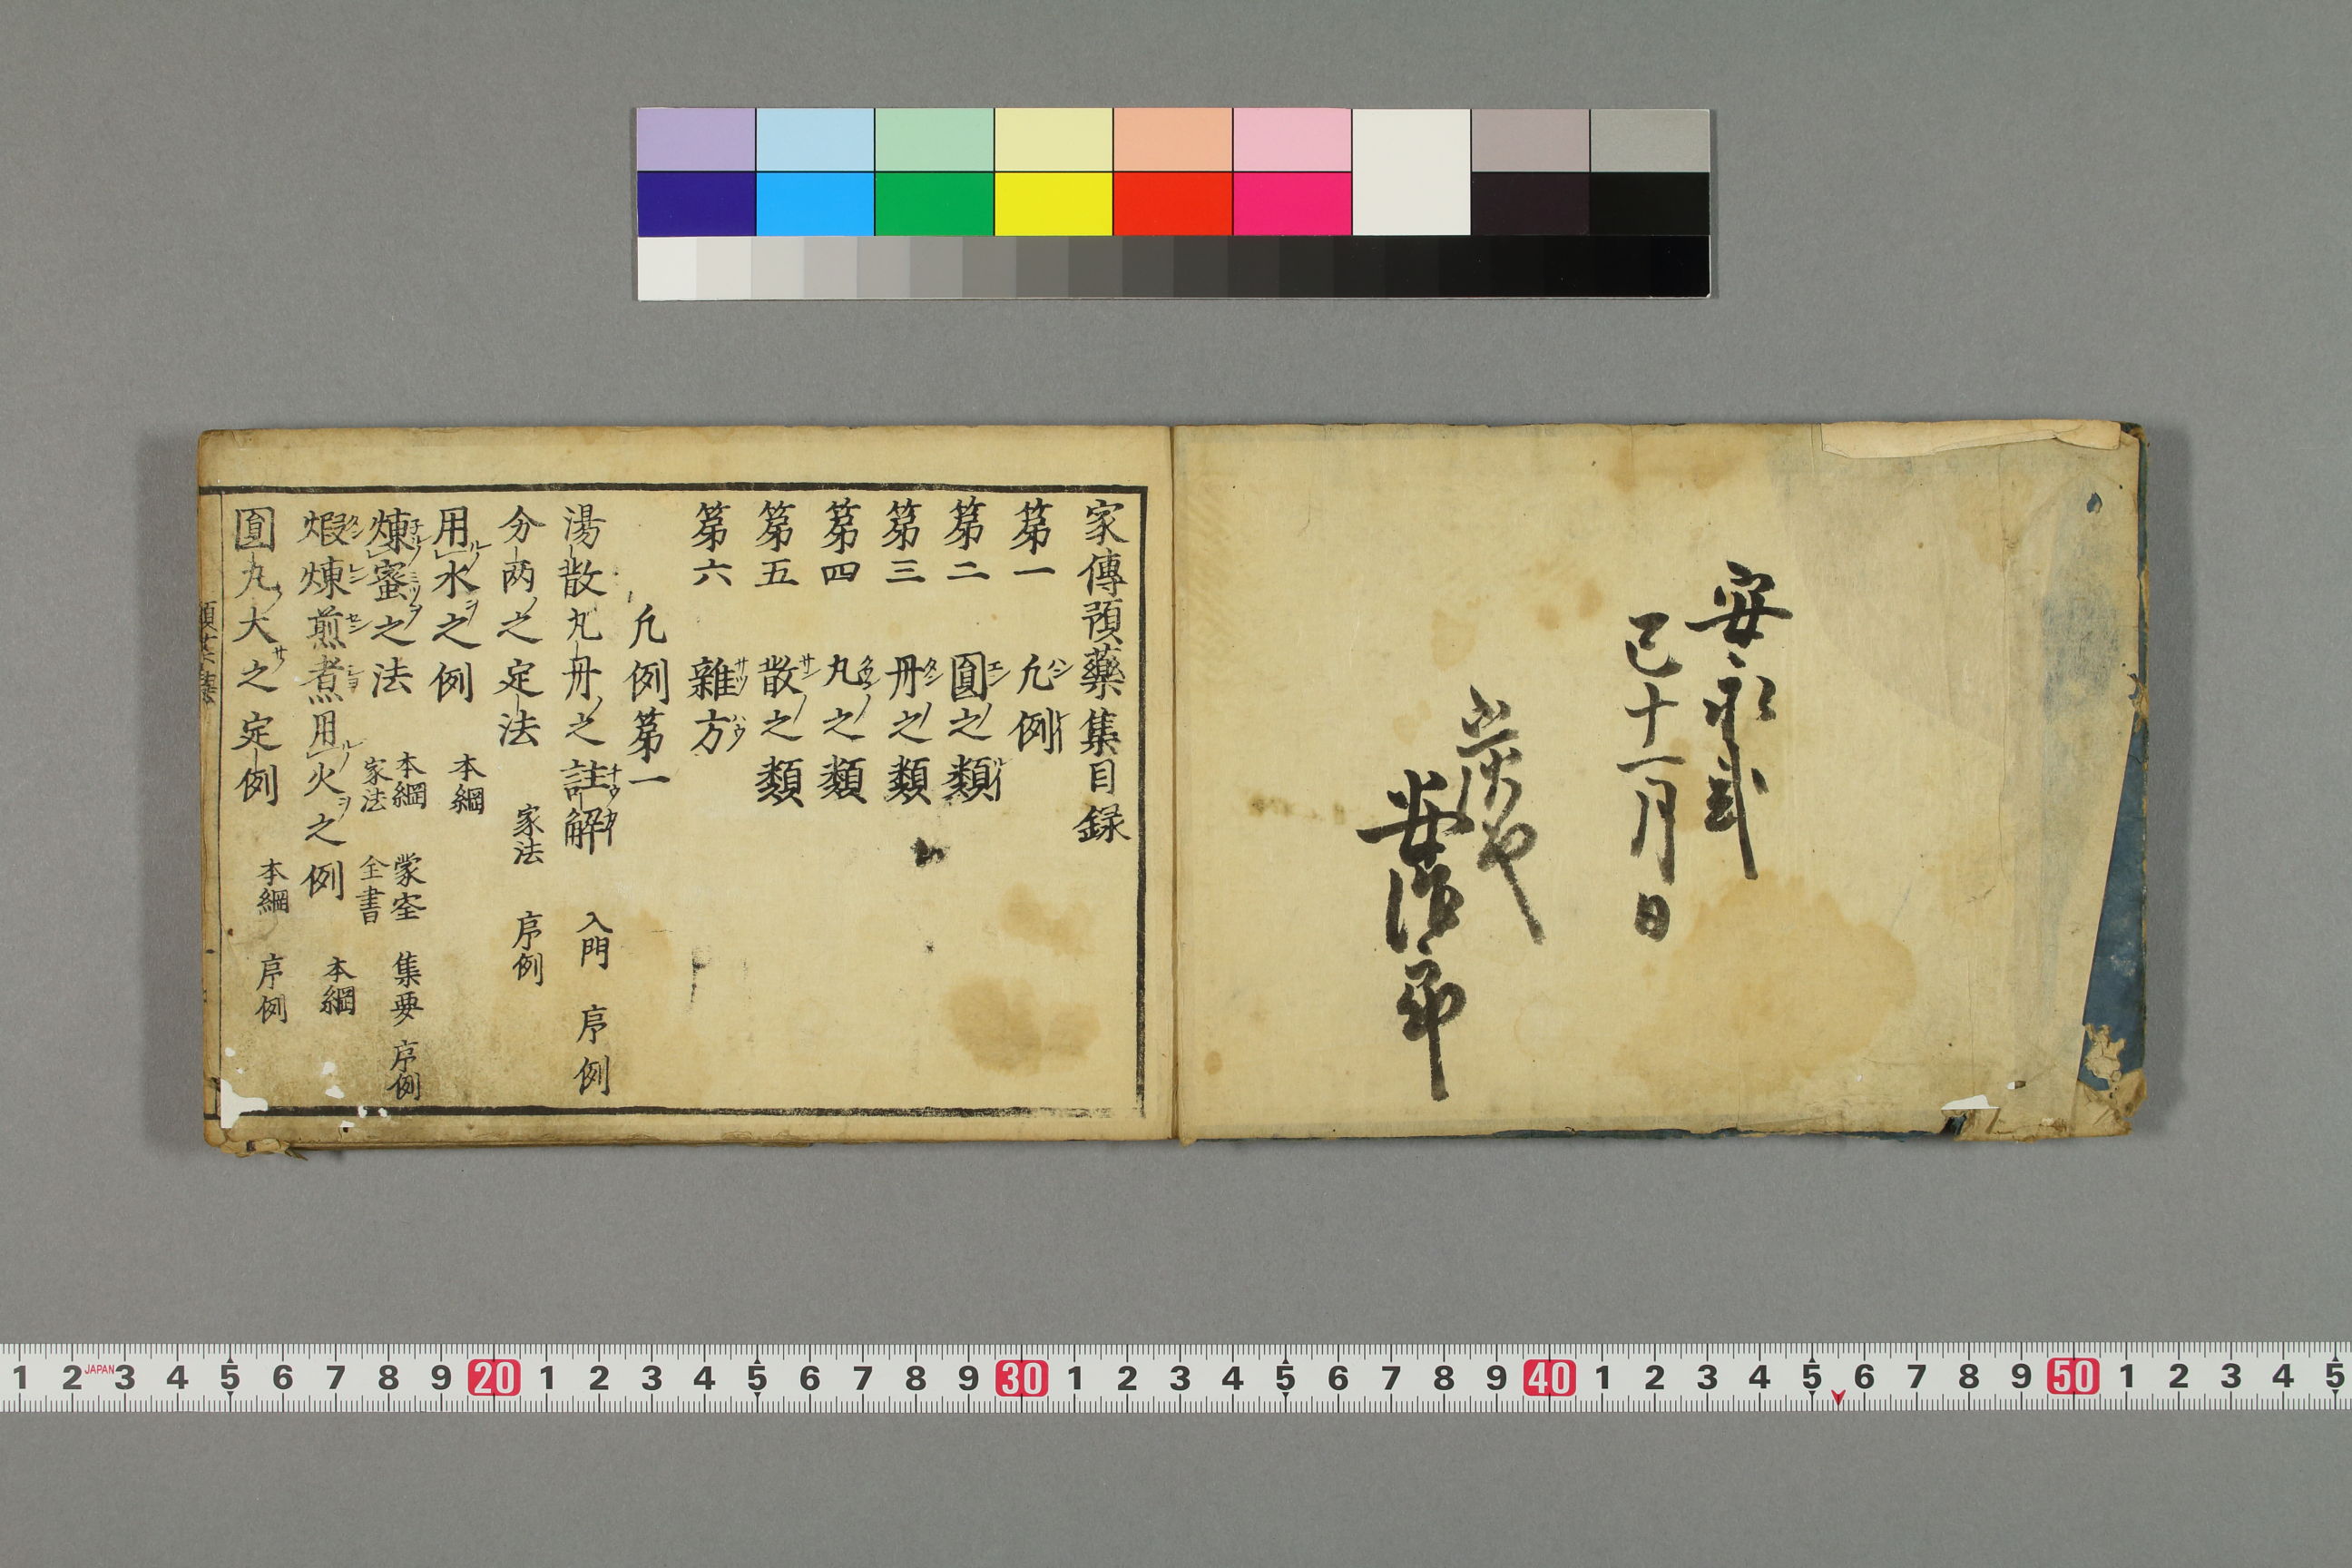 安永弐
巳十一月日
炭や
安治郎
家傳預藥集目録
第一 凢例
第二 圓之類
第三 丹之類
第四 丸之類
第五 散之類
第六 雜方
凢例第一
湯散丸丹之註解 入門 序例
分两之定法 家法 序例
用水之例 本綱
煉蜜之法 本綱 家法 蒙筌 全書 集要 序例
煆煉煎煮用火之例 本綱
圓丸大之定例 本綱 序例
1 2 JAPAN 3 4 5 6 7 8 9 20 1 2 3 4 5 6 7 8 9 30 1 2 3 4 5 6 7 8 9 40 1 2 3 4 5 6 7 8 9 50 1 2 3 4 5